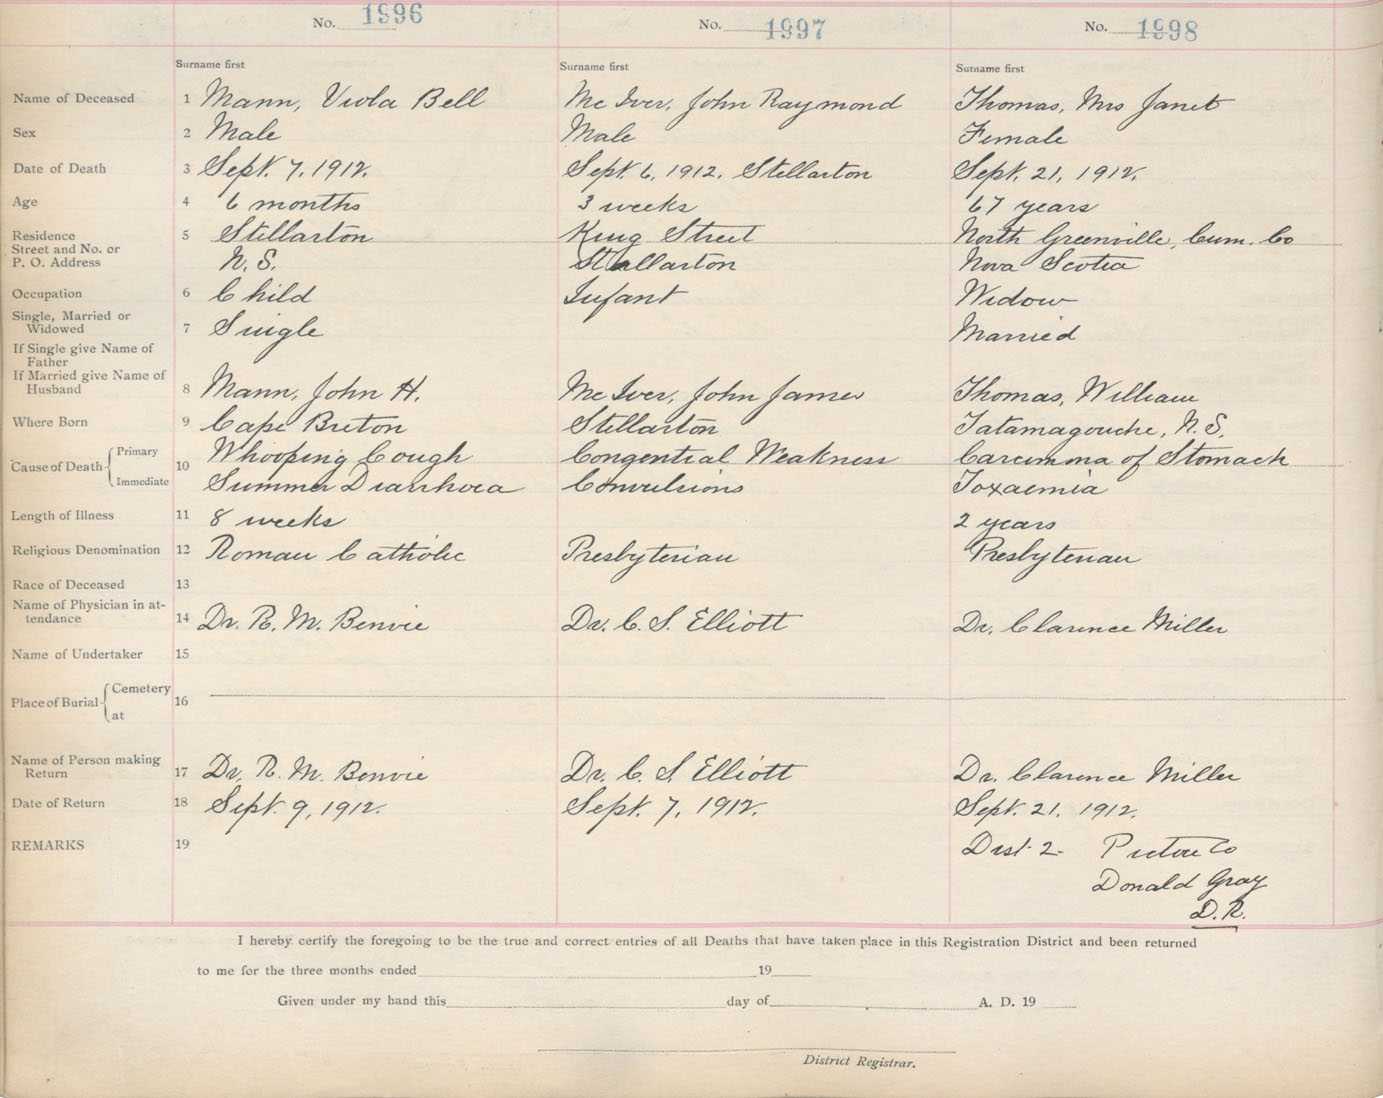 No. 1996 No. 1997 No. 1998
Surname first Surname first Surname first
Name of Deceased 1 Mann, Viola Bell Mc Iver, John Raymond Thomas, Mrs Janet
Sex 2 Male Male Female
Date of Death 3 Sept. 7, 1912. Sept. 6, 1912. Stellarton Sept. 21, 1912.
Age 4 6 months 3 weeks 67 years
Residence 5 Stellarton King Street North Greenville, Cum. Co
Street and No. or
P. O. Address N. S. Stellarton Nova Scotia
Occupation 6 Child Infant Widow
Single, Married or
Widowed 7 Single Married
If Single give Name of
Father
If Married give Name of
Husband 8 Mann, John H. Mc Iver, John James Thomas, William
Where Born 9 Cape Breton Stellarton Tatamagouche, N. S.
Cause of Death Primary 10 Whooping Cough Congential Weakness Carcinoma of Stomach
Immediate Summer Diarrhoea Convulsions Toxaemia
Length of Illness 11 8 weeks 2 years
Religious Denomination 12 Roman Catholic Presbyterian Presbyterian
Race of Deceased 13
Name of Physician in at-
tendance 14 Dr. R. M. Benvie Dr. C. S. Elliott Dr. Clarence Miller
Name of Undertaker 15
Place of Burial Cemetery 16
at
Name of Person making
Return 17 Dr. R. M. Benvie Dr. C. S. Elliott Dr. Clarence Miller
Date of Return 18 Sept. 9, 1912. Sept. 7, 1912. Sept. 21, 1912.
REMARKS 19 Dist. 2 - Pictou Co
Donald Gray
D. R.
I hereby certify the foregoing to be the true and correct entries of all Deaths that have taken place in this Registration District and been returned
to me for the three months ended 19
Given under my hand this day of A. D. 19
District Registrar.